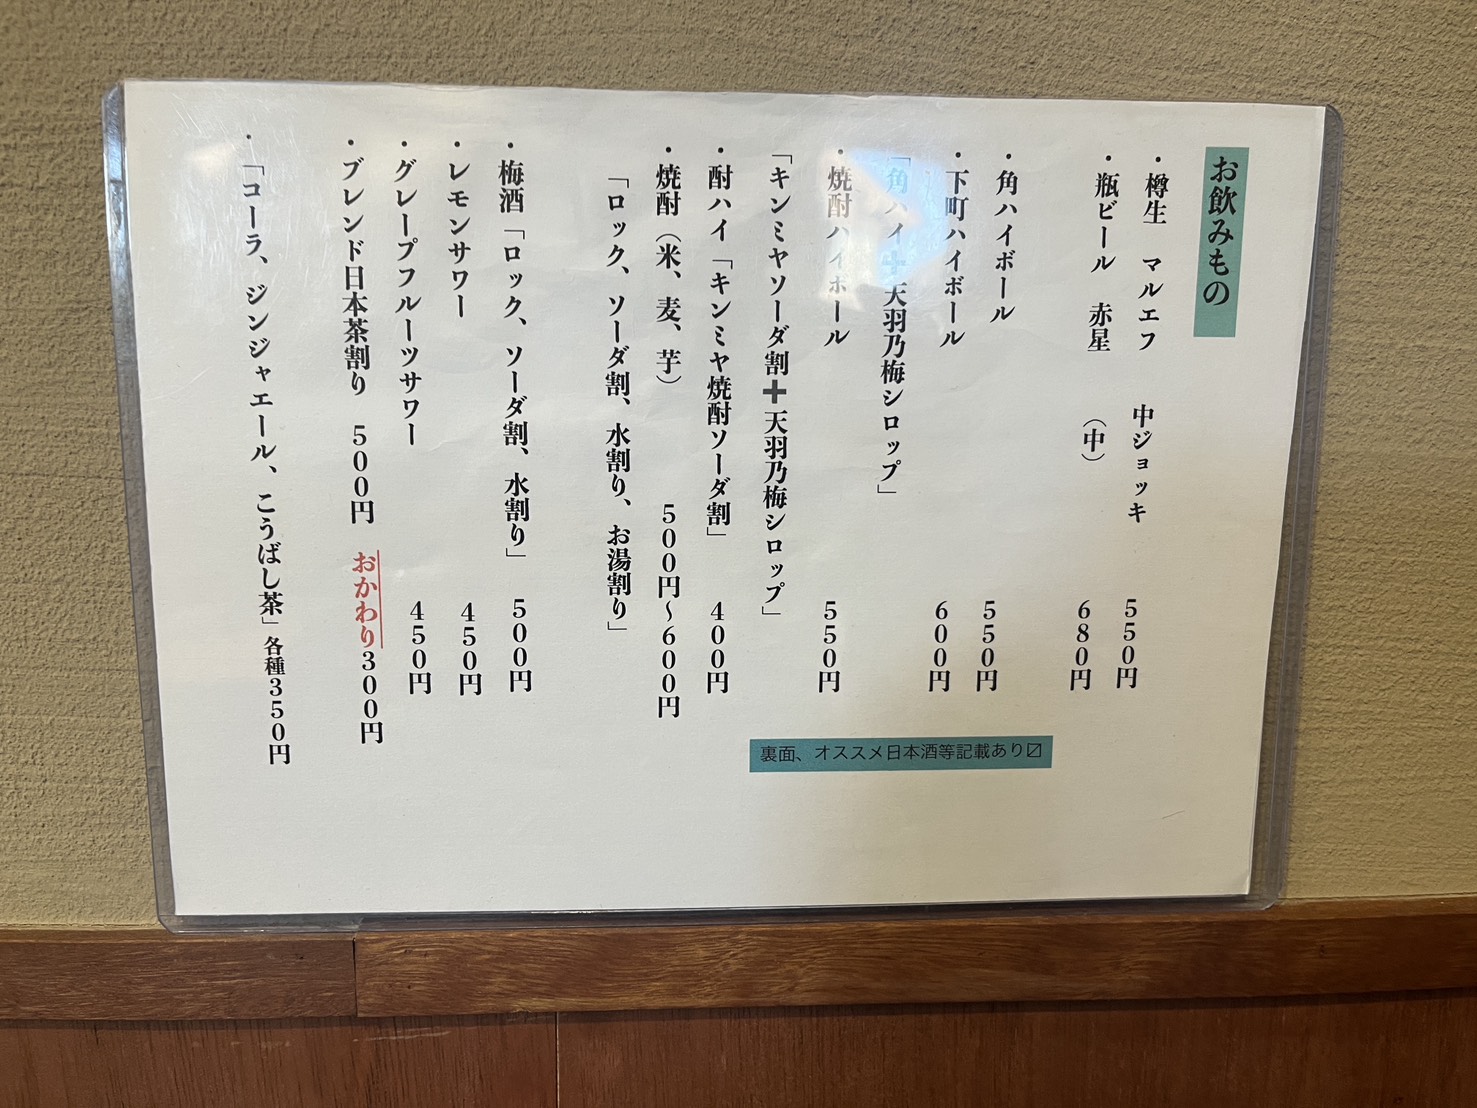 お飲みもの
・樽生　マルエフ　中ジョッキ　５５０円
・瓶ビール　赤星　（中）　６８０円
・角ハイボール　５５０円
・下町ハイボール　６００円
「角ハイ➕天羽乃梅シロップ」
・焼酎ハイボール　５５０円
「キンミヤソーダ割➕天羽乃梅シロップ」
・酎ハイ「キンミヤ焼酎ソーダ割」　４００円
・焼酎（米、麦、芋）　５００円〜６００円
「ロック、ソーダ割、水割り、お湯割り」
・梅酒「ロック、ソーダ割、水割り」　５００円
・レモンサワー　４５０円
・グレープフルーツサワー　４５０円
・ブレンド日本茶割り　５００円　おかわり３００円
・「コーラ、ジンジャエール、こうばし茶」各種３５０円
裏面、オススメ日本酒等記載あり〼